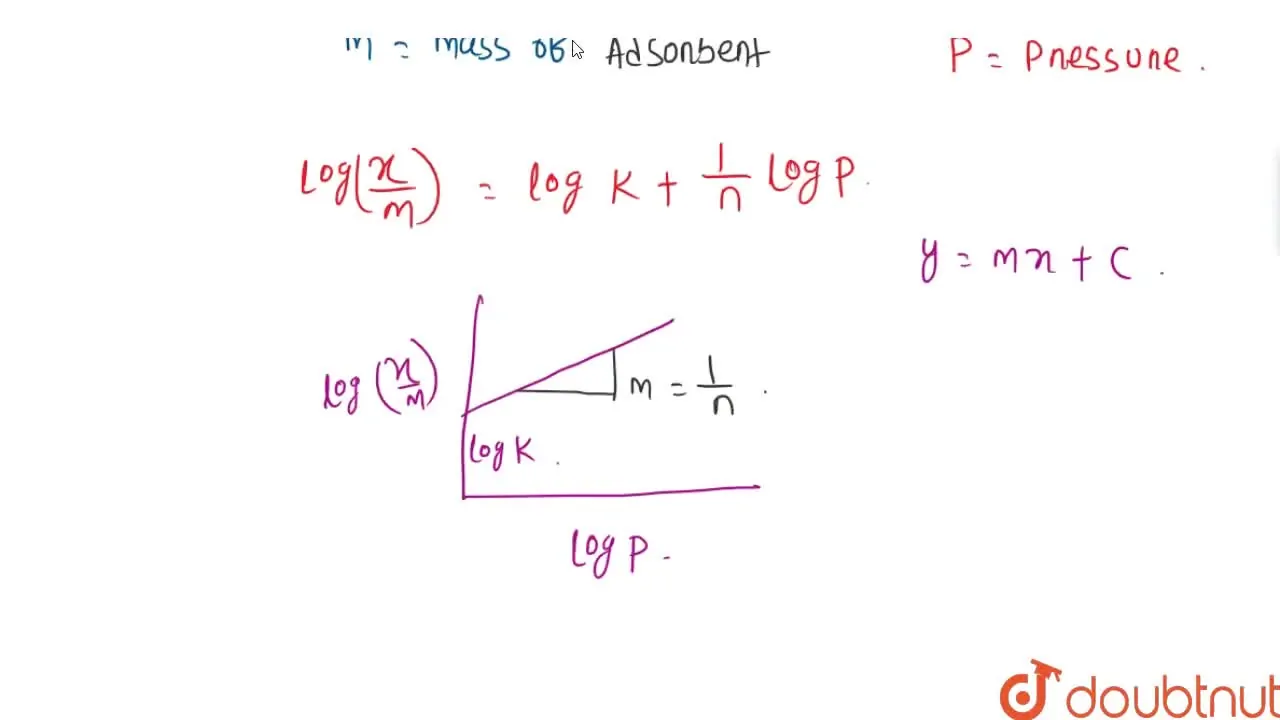 M = Mass of Adsorbent
P = Pressure.
log(x/m) = log K + 1/n log P.
y = mx + C.
log (x/m)
m = 1/n.
log K.
log P.
doubtnut